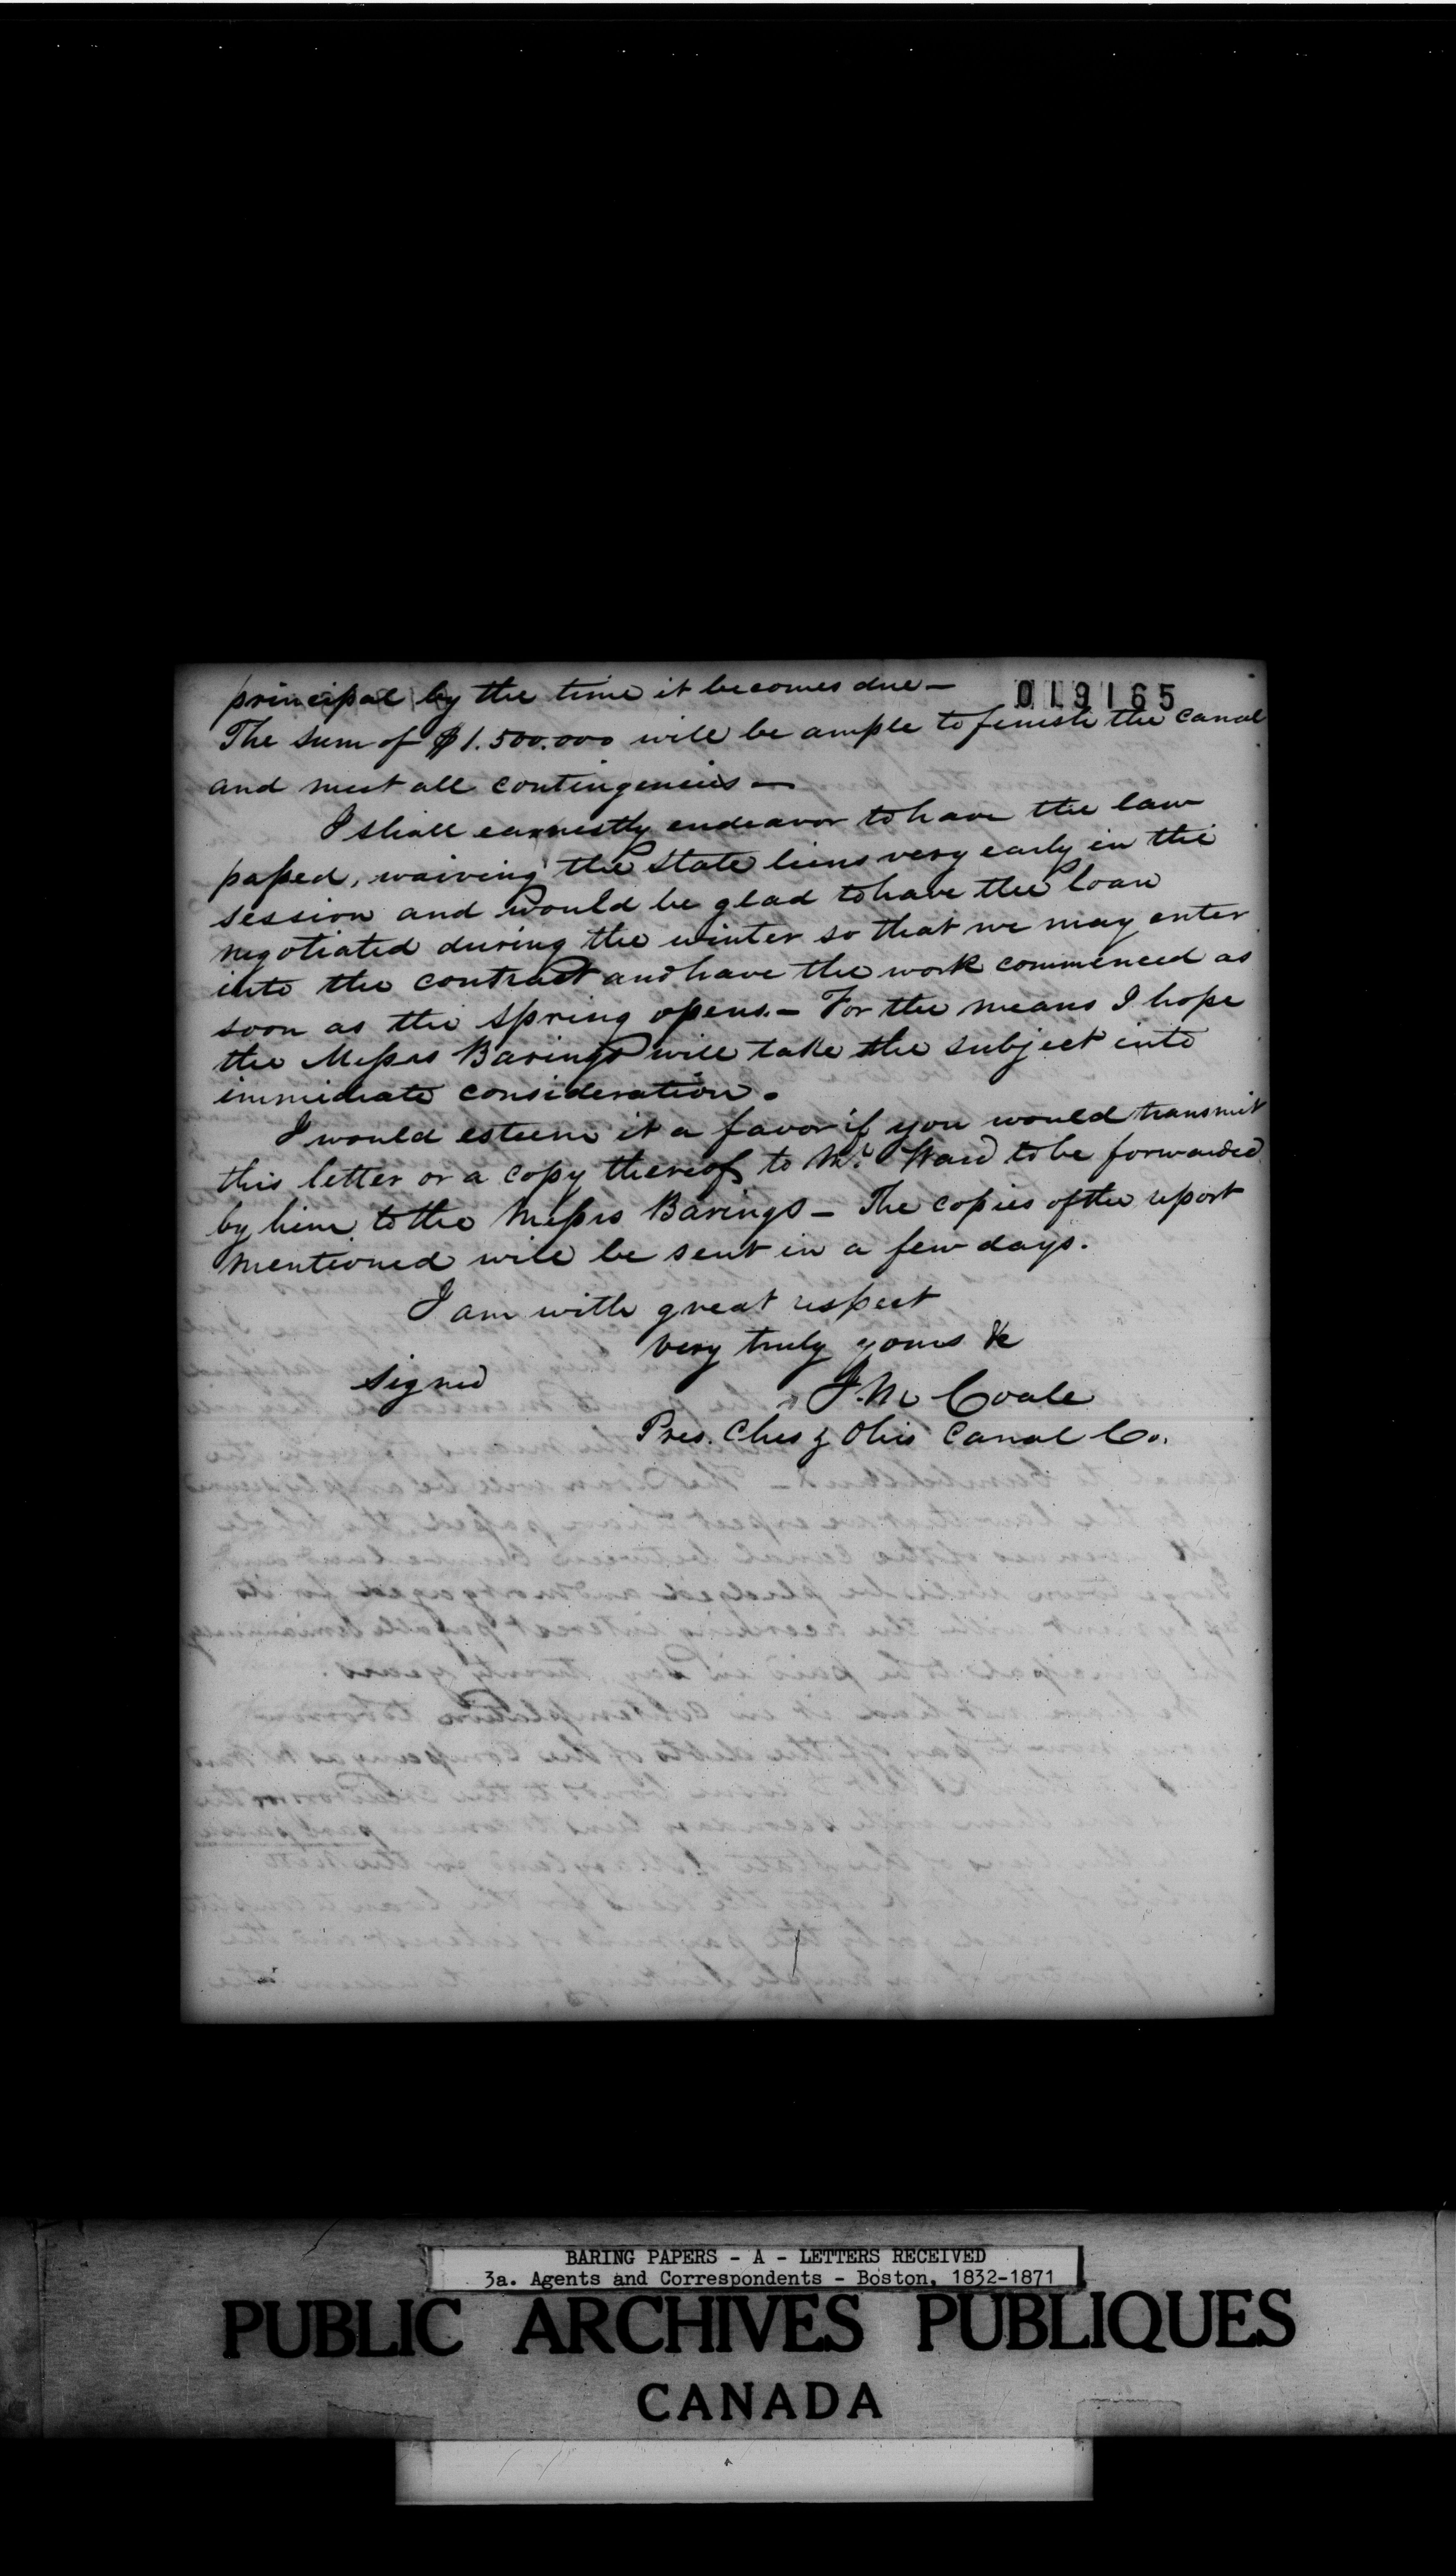 principal by the time it becomes due —
019165
The sum of $1.500.000 will be ample to finish the canal
and meet all contingencies —
I shall earnestly endeavor to have the law
passed, waiving the State liens very early in the
session and would be glad to have the loan
negotiated during the winter so that we may enter
into the contract and have the work commenced as
soon as the spring opens. — For the means I hope
the Messrs Barings will take the subject into
immediate consideration.
I would esteem it a favor if you would transmit
this letter or a copy thereof to Mr. Ward to be forwarded
by him to the Messrs Barings — The copies of the report
mentioned will be sent in a few days.
I am with great respect
very truly yours &c
Signed
J. M Coale
Pres. Ches & Ohio Canal Co.
BARING PAPERS - A - LETTERS RECEIVED
3a. Agents and Correspondents - Boston, 1832-1871
PUBLIC ARCHIVES PUBLIQUES
CANADA